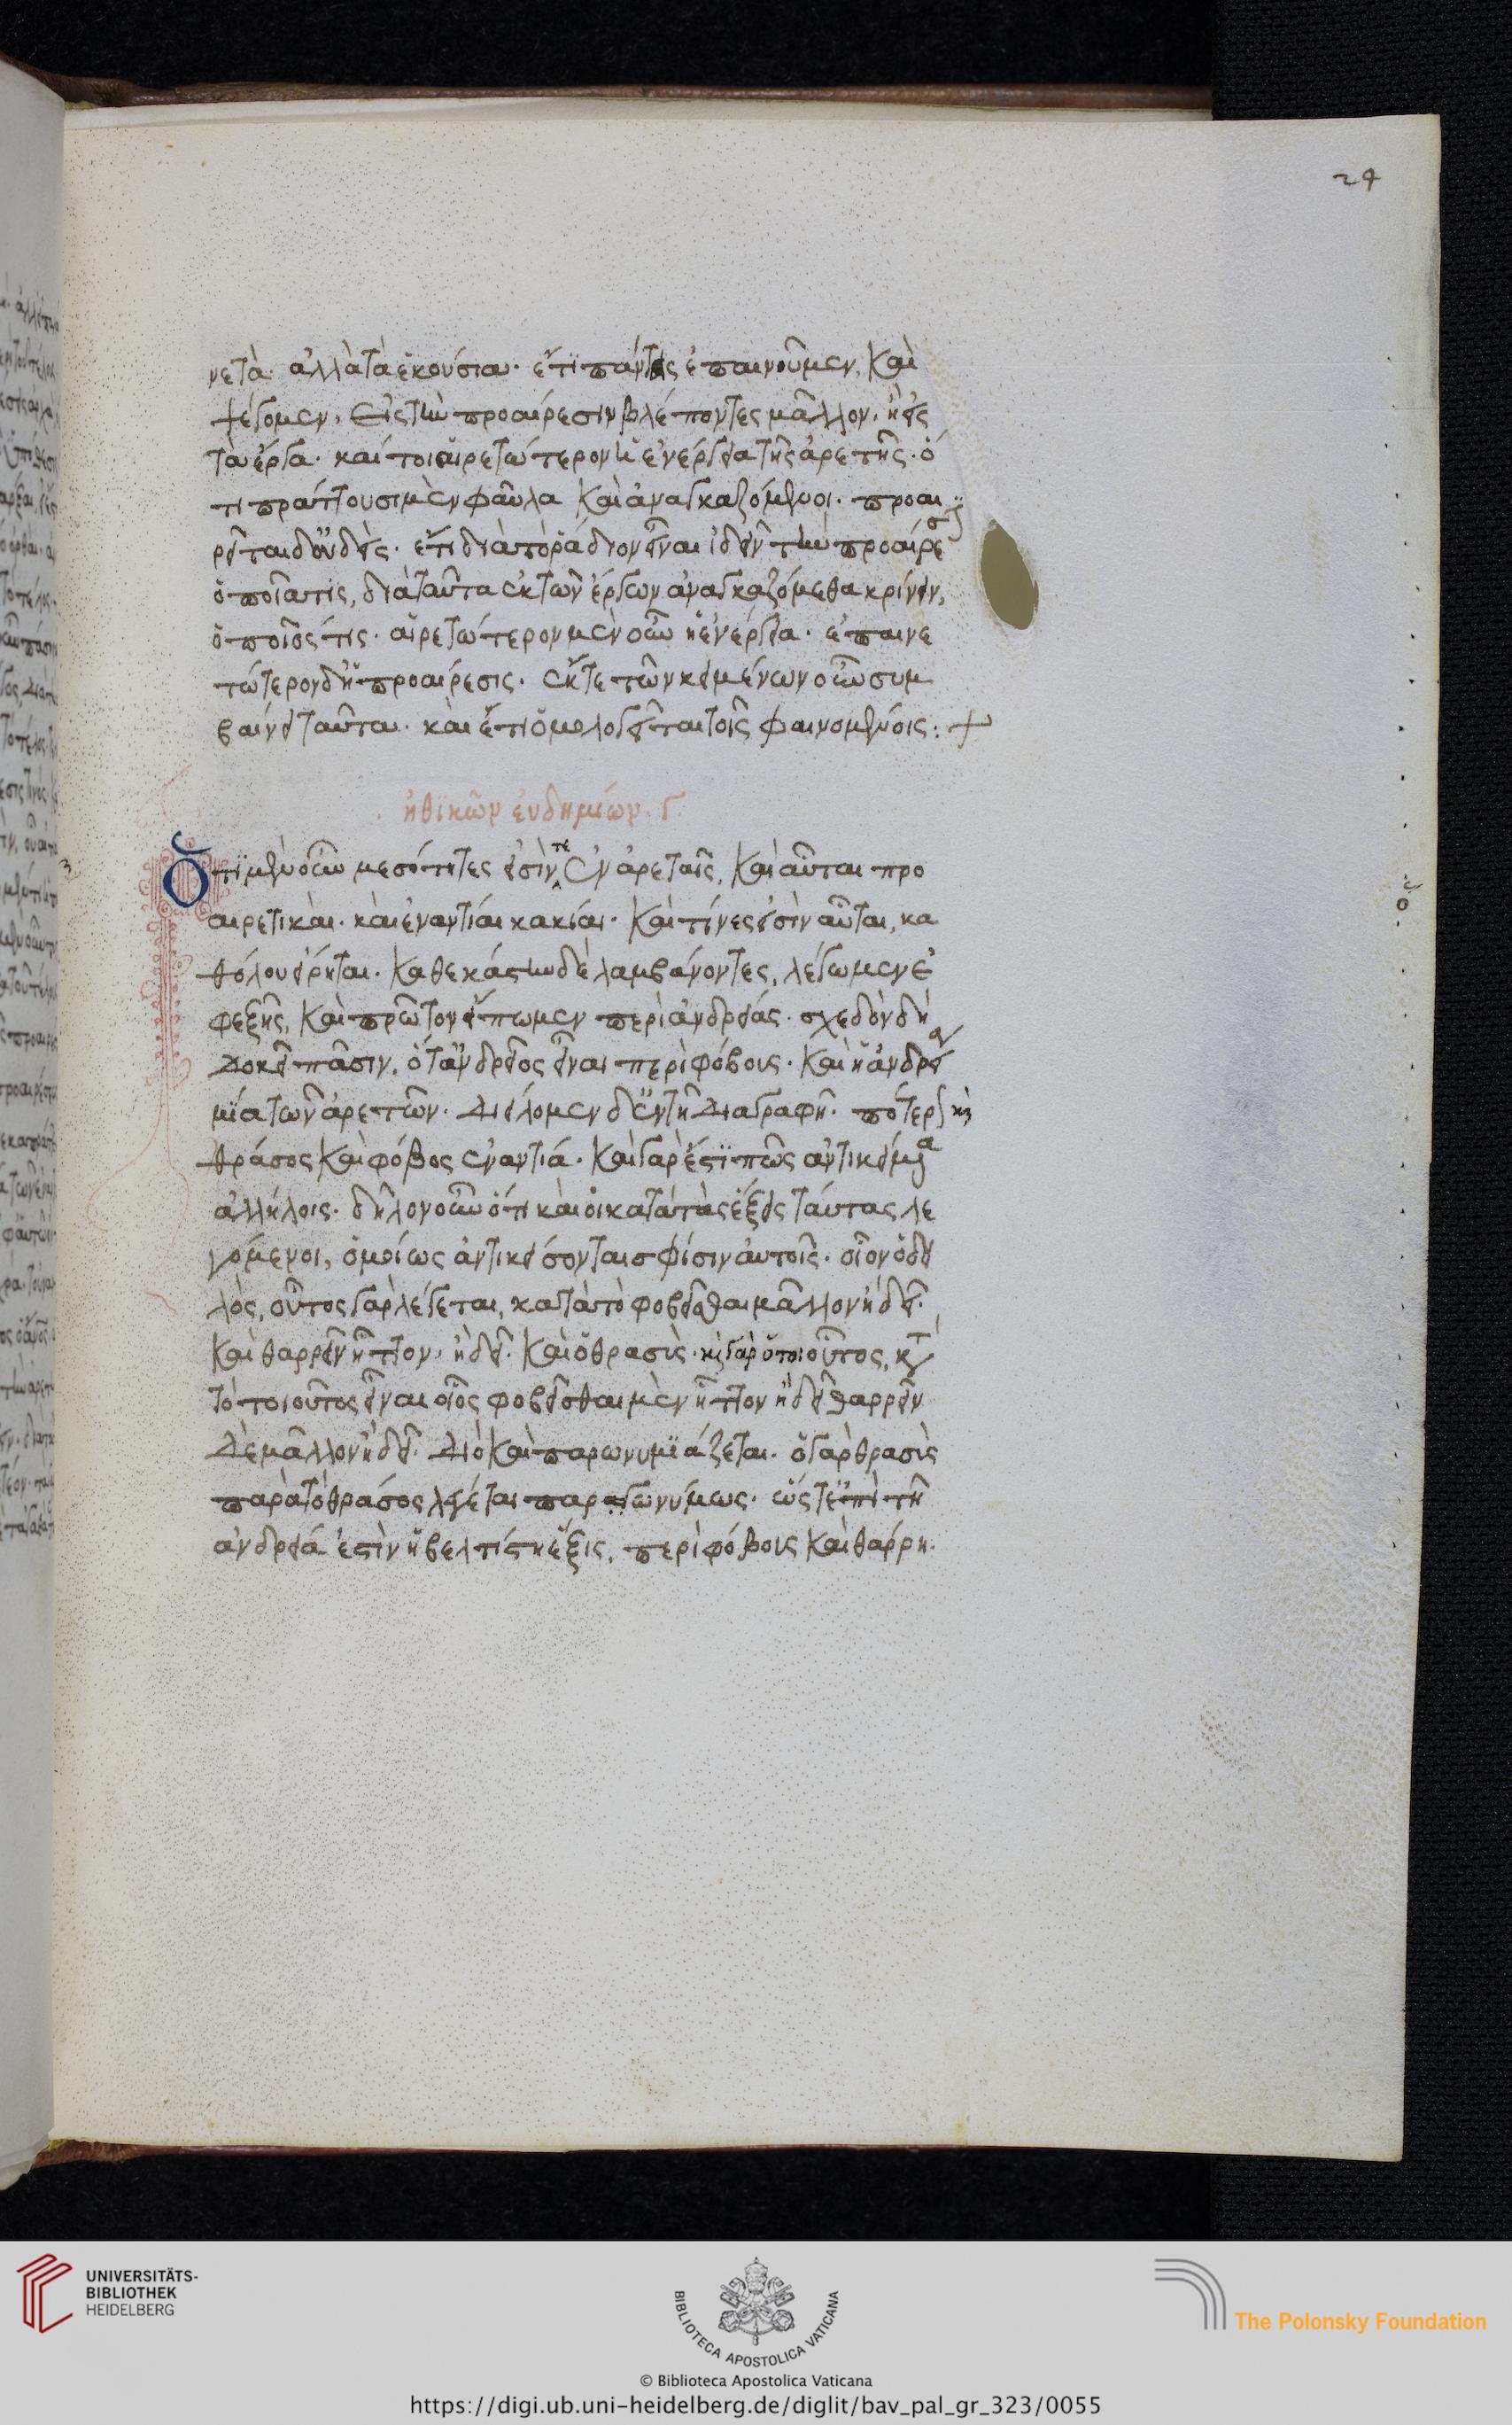 24
νετὰ· ἀλλὰ τὰ ἑκούσια· ἔτι πάντας ἐπαινοῦμεν, καὶ
ψέγομεν, εἰς τὴν προαίρεσιν βλέποντες μᾶλλον, ἢ εἰς
τὰ ἔργα· καί τοι αἱρετώτερον ἡ ἐνέργεια τῆς ἀρετῆς· ὅ
τι πράττουσι μὲν φαῦλα καὶ ἀναγκαζόμενοι· προαι
ρεῖται δ' οὐδείς· ἔτι διὰ τὸ ῥάδιον εἶναι ἰδεῖν τὴν προαίρεσιν
ὁποία τις, διὰ ταῦτα ἐκ τῶν ἔργων ἀναγκαζόμεθα κρίνειν,
ὁποῖός τις· αἱρετώτερον μὲν οὖν ἡ ἐνέργεια· ἐπαινε
τώτερον δ' ἡ προαίρεσις· ἔκ τε τῶν κειμένων οὖν συμ
βαίνει ταῦτα· καὶ ἔτι ὁμολογεῖται τοῖς φαινομένοις: +
ἠθικῶν εὐδημίων· γ
Ὅτι μὲν οὖν μεσότητες εἰσίν τε ἐν ἀρεταῖς, καὶ αὗται προ
αιρετικαὶ· καὶ ἐναντίαι κακίαι· καὶ τίνες εἰσὶν αὗται, κα
θόλου εἴρηται· καθ' ἑκάστην δὲ λαμβάνοντες, λέγωμεν ἐ
φεξῆς, καὶ πρῶτον εἴπωμεν περὶ ἀνδρείας· σχεδὸν δὴ
δοκεῖ πᾶσιν, ὅτ' ἀνδρεῖος εἶναι περὶ φόβους· καὶ ἡ ἀνδρεία
μία τῶν ἀρετῶν· διείλομεν δ' ἐν τῇ διαγραφῇ· πότερον καὶ
θράσος καὶ φόβος ἐναντία· καὶ γὰρ ἐστί πως ἀντικείμενα
ἀλλήλοις· δῆλον οὖν ὅτι καὶ οἱ κατὰ τὰς ἕξεις ταύτας λε
γόμενοι, ὁμοίως ἀντικείσονται σφίσιν αὐτοῖς· οἷον ὁ δει
λὸς, οὗτος γὰρ λέγεται, κατὰ τὸ φοβεῖσθαι μᾶλλον ἢ δεῖ·
καὶ θαρρεῖν ἧττον, ἢ δεῖ· καὶ ὁ θρασὺς· καὶ γὰρ ὅτοιοῦτος, κατὰ
τὸ τοιοῦτος εἶναι οἷος φοβεῖσθαι μὲν ἧττον ἢ δεῖ θαρρεῖν
δὲ μᾶλλον ἢ δεῖ· διὸ καὶ παρωνυμιάζεται· ὁ γὰρ θρασὺς
παρὰ τὸ θράσος λέγεται παρωνύμως· ὥστ' ἐπεὶ ἡ
ἀνδρεία ἐστὶν ἡ βελτίστη ἕξις, περὶ φόβους καὶ θάρρη·
UNIVERSITÄTS-
BIBLIOTHEK
HEIDELBERG
BIBLIOTECA APOSTOLICA VATICANA
The Polonsky Foundation
© Biblioteca Apostolica Vaticana
https://digi.ub.uni-heidelberg.de/diglit/bav_pal_gr_323/0055